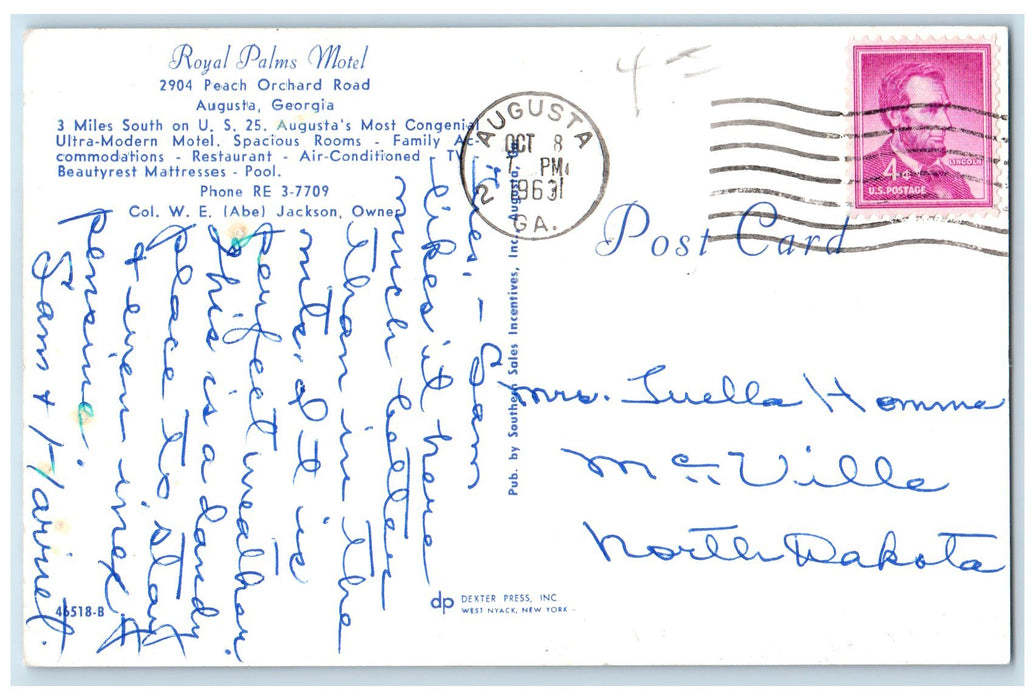 Royal Palms Motel
2904 Peach Orchard Road
Augusta, Georgia
3 Miles South on U. S. 25. Augusta's Most Congenial
Ultra-Modern Motel. Spacious Rooms - Family Ac-
commodations - Restaurant - Air-Conditioned - TV
Beautyrest Mattresses - Pool.
Phone RE 3-7709
Col. W. E. (Abe) Jackson, Owner
Tues. - Sam
likes it here
much better
than in the
mts. & It is
perfect weather.
This is a dandy
place to stay
& even inex
pensive.
Sam & Harriet.
46518-B
Pub. by Southern Sales Incentives, Inc. Augusta,
dp DEXTER PRESS, INC.
WEST NYACK, NEW YORK
4¢
AUGUSTA
OCT 8
PM
1963
2
GA.
LINCOLN
4¢
U.S. POSTAGE
Post Card
Mrs. Luella Homme
McVille
North Dakota